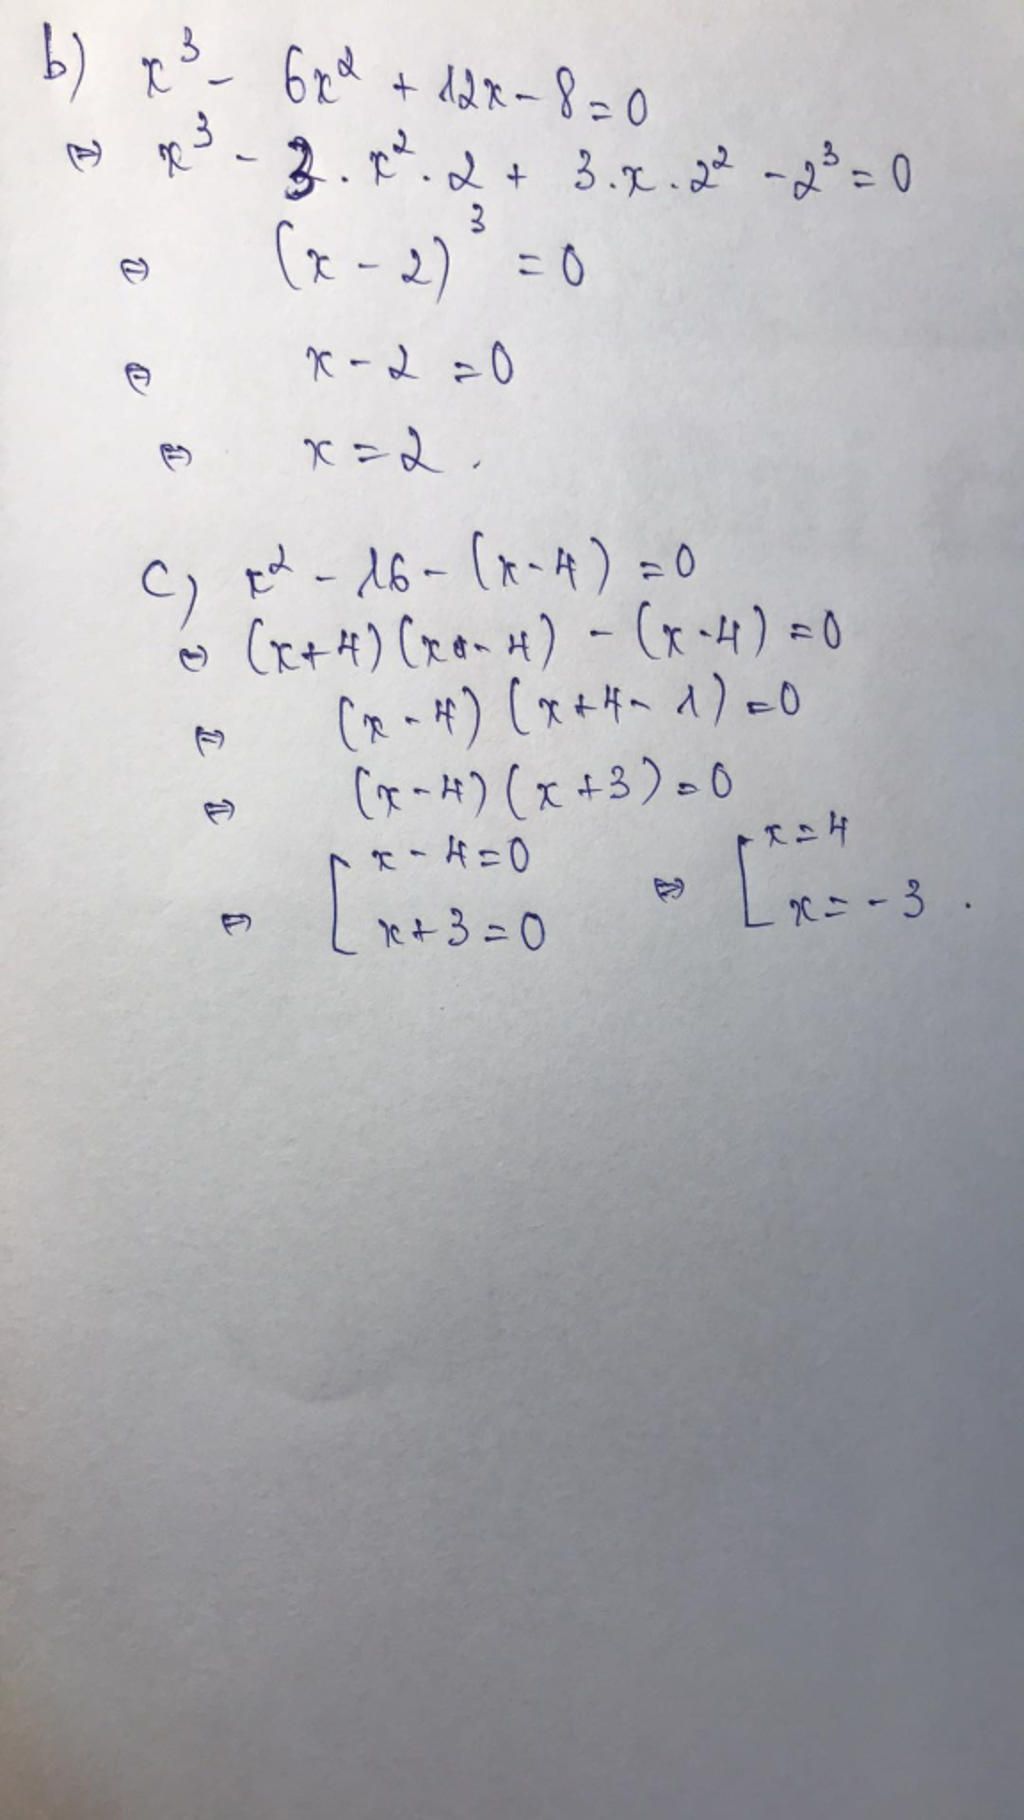 b) x³ - 6x² + 12x - 8 = 0
⇔ x³ - 3 . x² . 2 + 3 . x . 2² - 2³ = 0
⇔ (x - 2)³ = 0
⇔ x - 2 = 0
⇔ x = 2 .
c) x² - 16 - (x - 4) = 0
⇔ (x + 4) (x - 4) - (x - 4) = 0
⇔ (x - 4) (x + 4 - 1) = 0
⇔ (x - 4) (x + 3) = 0
⇔ [ x - 4 = 0 ⇔ [ x = 4
x + 3 = 0 x = - 3 .